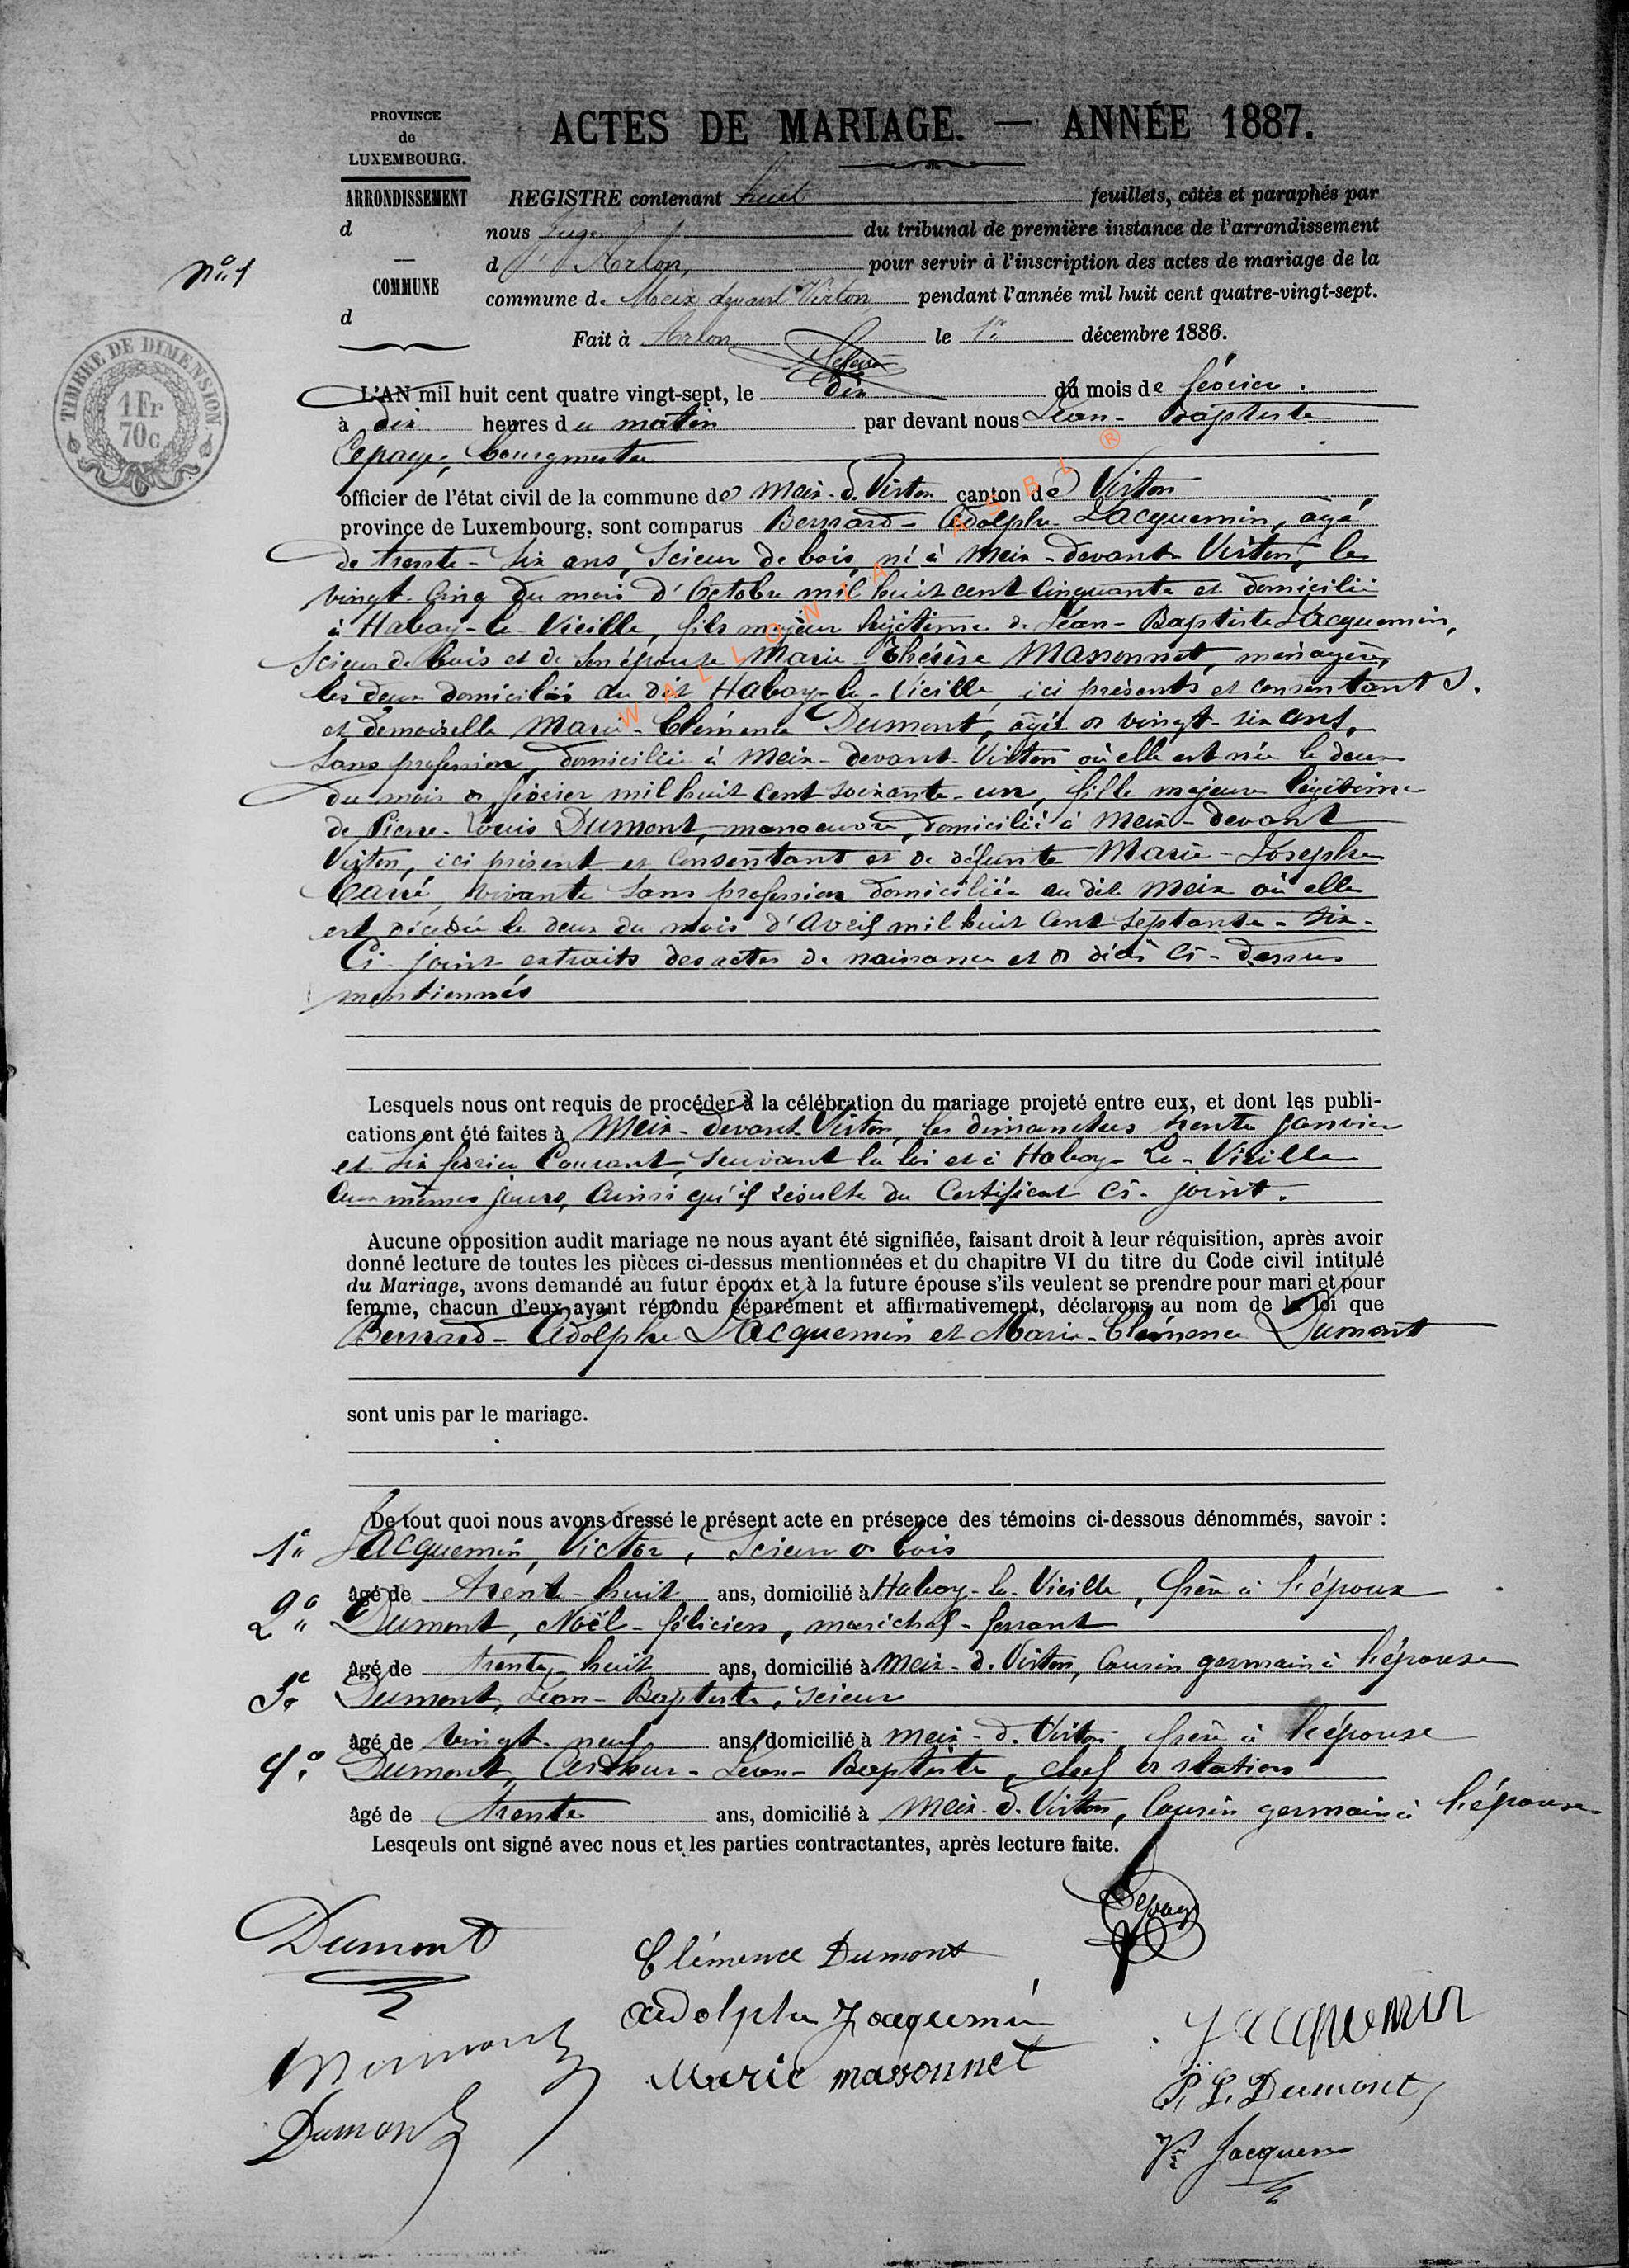 PROVINCE
de
LUXEMBOURG.
ARRONDISSEMENT
d
COMMUNE
d
ACTES DE MARIAGE. — ANNÉE 1887.
REGISTRE contenant huit feuillets, côtés et paraphés par
nous Juge du tribunal de première instance de l'arrondissement
d'Arlon, pour servir à l'inscription des actes de mariage de la
commune de Meix devant Virton pendant l'année mil huit cent quatre-vingt-sept.
Fait à Arlon le 1er décembre 1886.
No. 1
TIMBRE DE DIMENSION
1 Fr
70 C
L'AN mil huit cent quatre vingt-sept, le dix du mois de février.
à dix heures du matin par devant nous Jean-Baptiste
Lepage, bourgmestre
officier de l'état civil de la commune de Meix-d.Virton canton de Virton
province de Luxembourg, sont comparus Bernard-Adolphe Jacquemin, agé
de trente-six ans, scieur de bois, né à Meix-devant-Virton, le
vingt-cinq du mois d'Octobre mil huit cent cinquante et domicilié
à Habay-la-Vieille, fils majeur légitime de Jean-Baptiste Jacquemin,
scieur de bois et de son épouse Marie-Thérèse Massonnet, ménagère,
les deux domiciliés au dit Habay-la-Vieille, ici présents et consentants.
et demoiselle Marie-Clémence Dumont, âgée de vingt-six ans,
sans profession, domiciliée à Meix-devant-Virton où elle est née le deux
du mois de février mil huit cent soixante-un, fille majeure légitime
de Pierre-Louis Dumont, manoeuvre, domicilié à Meix-devant
Virton, ici présent et consentant et de défunte Marie-Josephe
Carré, vivante sans profession domiciliée au dit Meix où elle
est décédée le deux du mois d'Avril mil huit cent septante-six.
Ci-joint extraits des actes de naissance et de décès ci-dessus
mentionnés
Lesquels nous ont requis de procéder à la célébration du mariage projeté entre eux, et dont les publi-
cations ont été faites à Meix-devant-Virton, les dimanches trente janvier
et six février courant, suivant la loi et à Habay-la-Vieille
les mêmes jours, ainsi qu'il résulte du certificat ci-joint.
Aucune opposition audit mariage ne nous ayant été signifiée, faisant droit à leur réquisition, après avoir
donné lecture de toutes les pièces ci-dessus mentionnées et du chapitre VI du titre du Code civil intitulé
du Mariage, avons demandé au futur époux et à la future épouse s'ils veulent se prendre pour mari et pour
femme, chacun d'eux ayant répondu séparément et affirmativement, déclarons au nom de la loi que
Bernard-Adolphe Jacquemin et Marie-Clémence Dumont
sont unis par le mariage.
De tout quoi nous avons dressé le présent acte en présence des témoins ci-dessous dénommés, savoir :
1o Jacquemin, Victor, scieur de bois
âgé de trente-huit ans, domicilié à Habay-la-Vieille, frère à l'époux
2o Dumont, Noël-félicien, maréchal-ferrant
âgé de trente-huit ans, domicilié à Meix-d.Virton, cousin germain à l'épouse
3o Dumont, Jean-Baptiste, scieur
âgé de vingt-neuf ans, domicilié à Meix-d.Virton frère à l'épouse
4o Dumont, Arthur-Jean-Baptiste, chef de station
âgé de trente ans, domicilié à Meix-d.Virton, cousin germain à l'épouse
Lesqeuls ont signé avec nous et les parties contractantes, après lecture faite.
Lepage
Dumont
Clémence Dumont
Adolphe Jacquemin
Jacquemin
Marie Massonnet
P. L. Dumont
Dumont
Vr Jacquem
WALLONIA ASBL ®